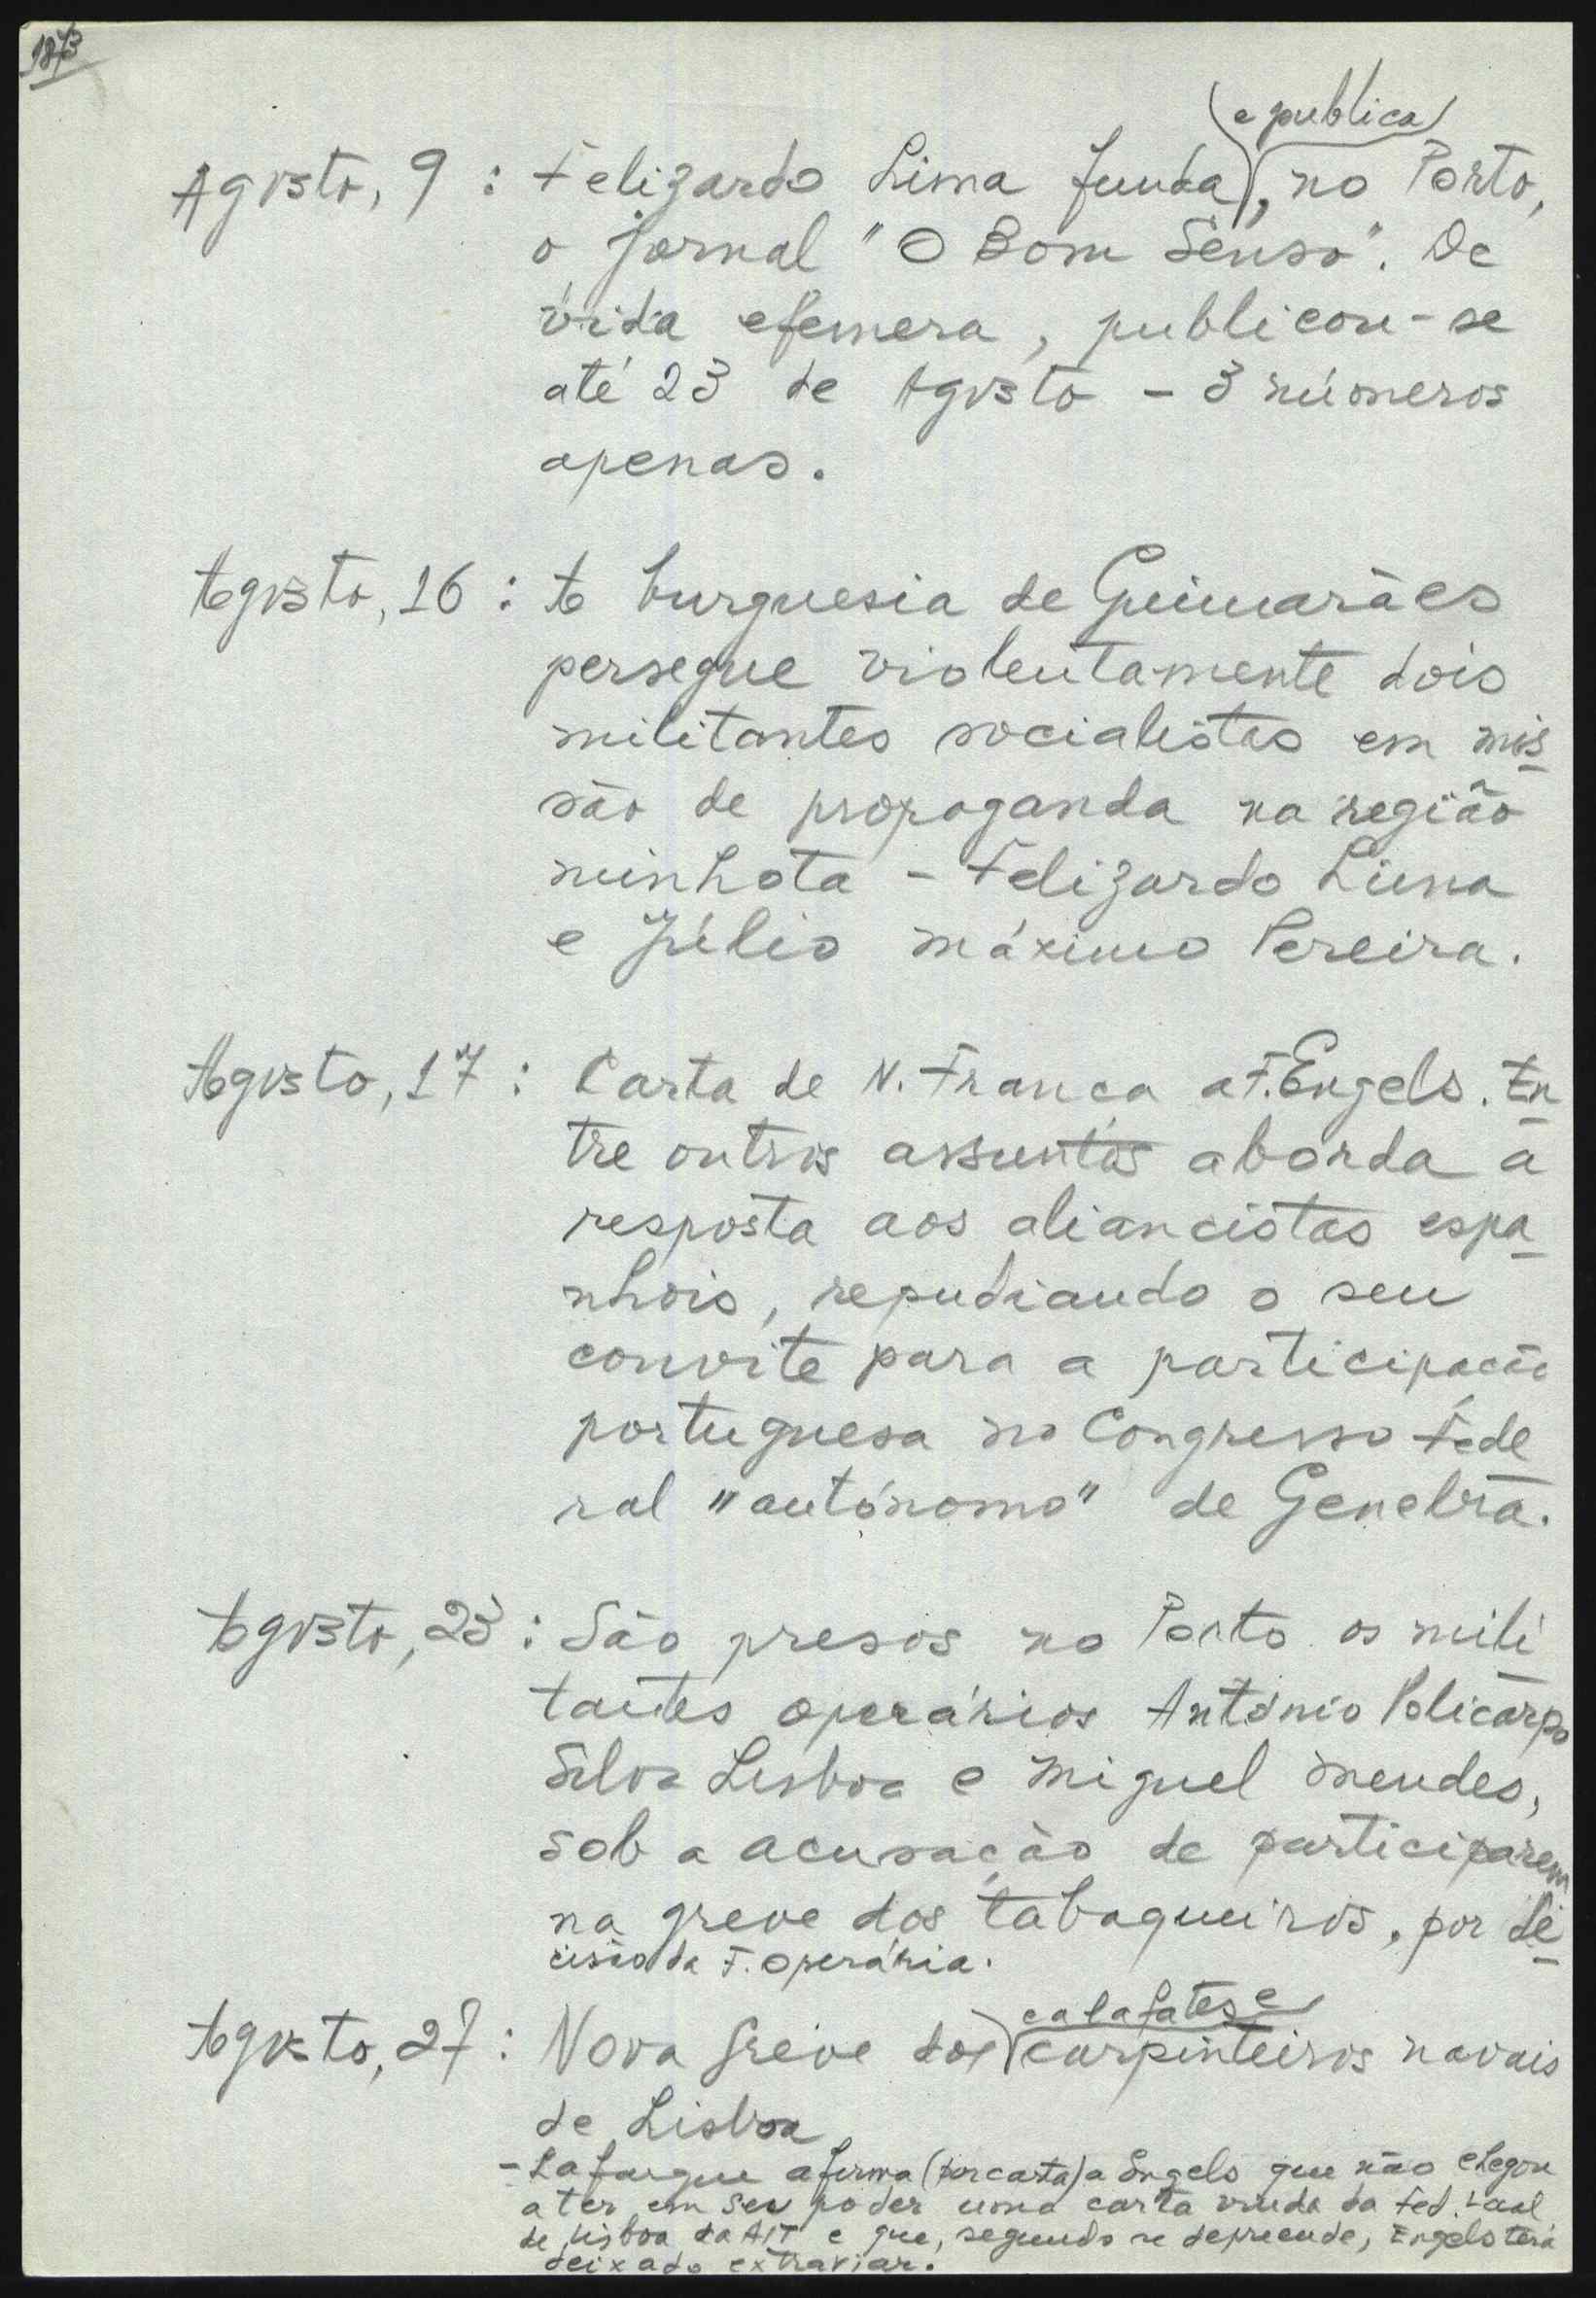 1873
(e publica)
Agosto, 9 : Felizardo Lima funda, no Porto,
o jornal "O Bom Senso". De
vida efemera, publicou-se
até 23 de Agosto - 3 números
apenas.
Agosto, 16 : A burguesia de Guimarães
persegue violentamente dois
militantes socialistas em mis
são de propaganda na região
minhota - Felizardo Lima
e Júlio Máximo Pereira.
Agosto, 17 : Carta de N. França a F. Engels. En
tre outros assuntos aborda a
resposta aos aliancistas espa
nhois, repudiando o seu
convite para a participação
portuguesa no Congresso Fede
ral "autónomo" de Genebra.
Agosto, 23 : São presos no Porto os mili
tantes operários António Policarpo
Silva Lisboa e Miguel Mendes,
sob a acusação de participarem
na greve dos tabaqueiros, por de
cisão da F. Operária.
calafates e
Agosto, 27 : Nova greve dos carpinteiros navais
de Lisboa
- Lafargue afirma (por carta) a Engels que não chegou
a ter em seu poder uma carta vinda da Fed. Local
de Lisboa da AIT e que, segundo se depreende, Engels terá
deixado extraviar.